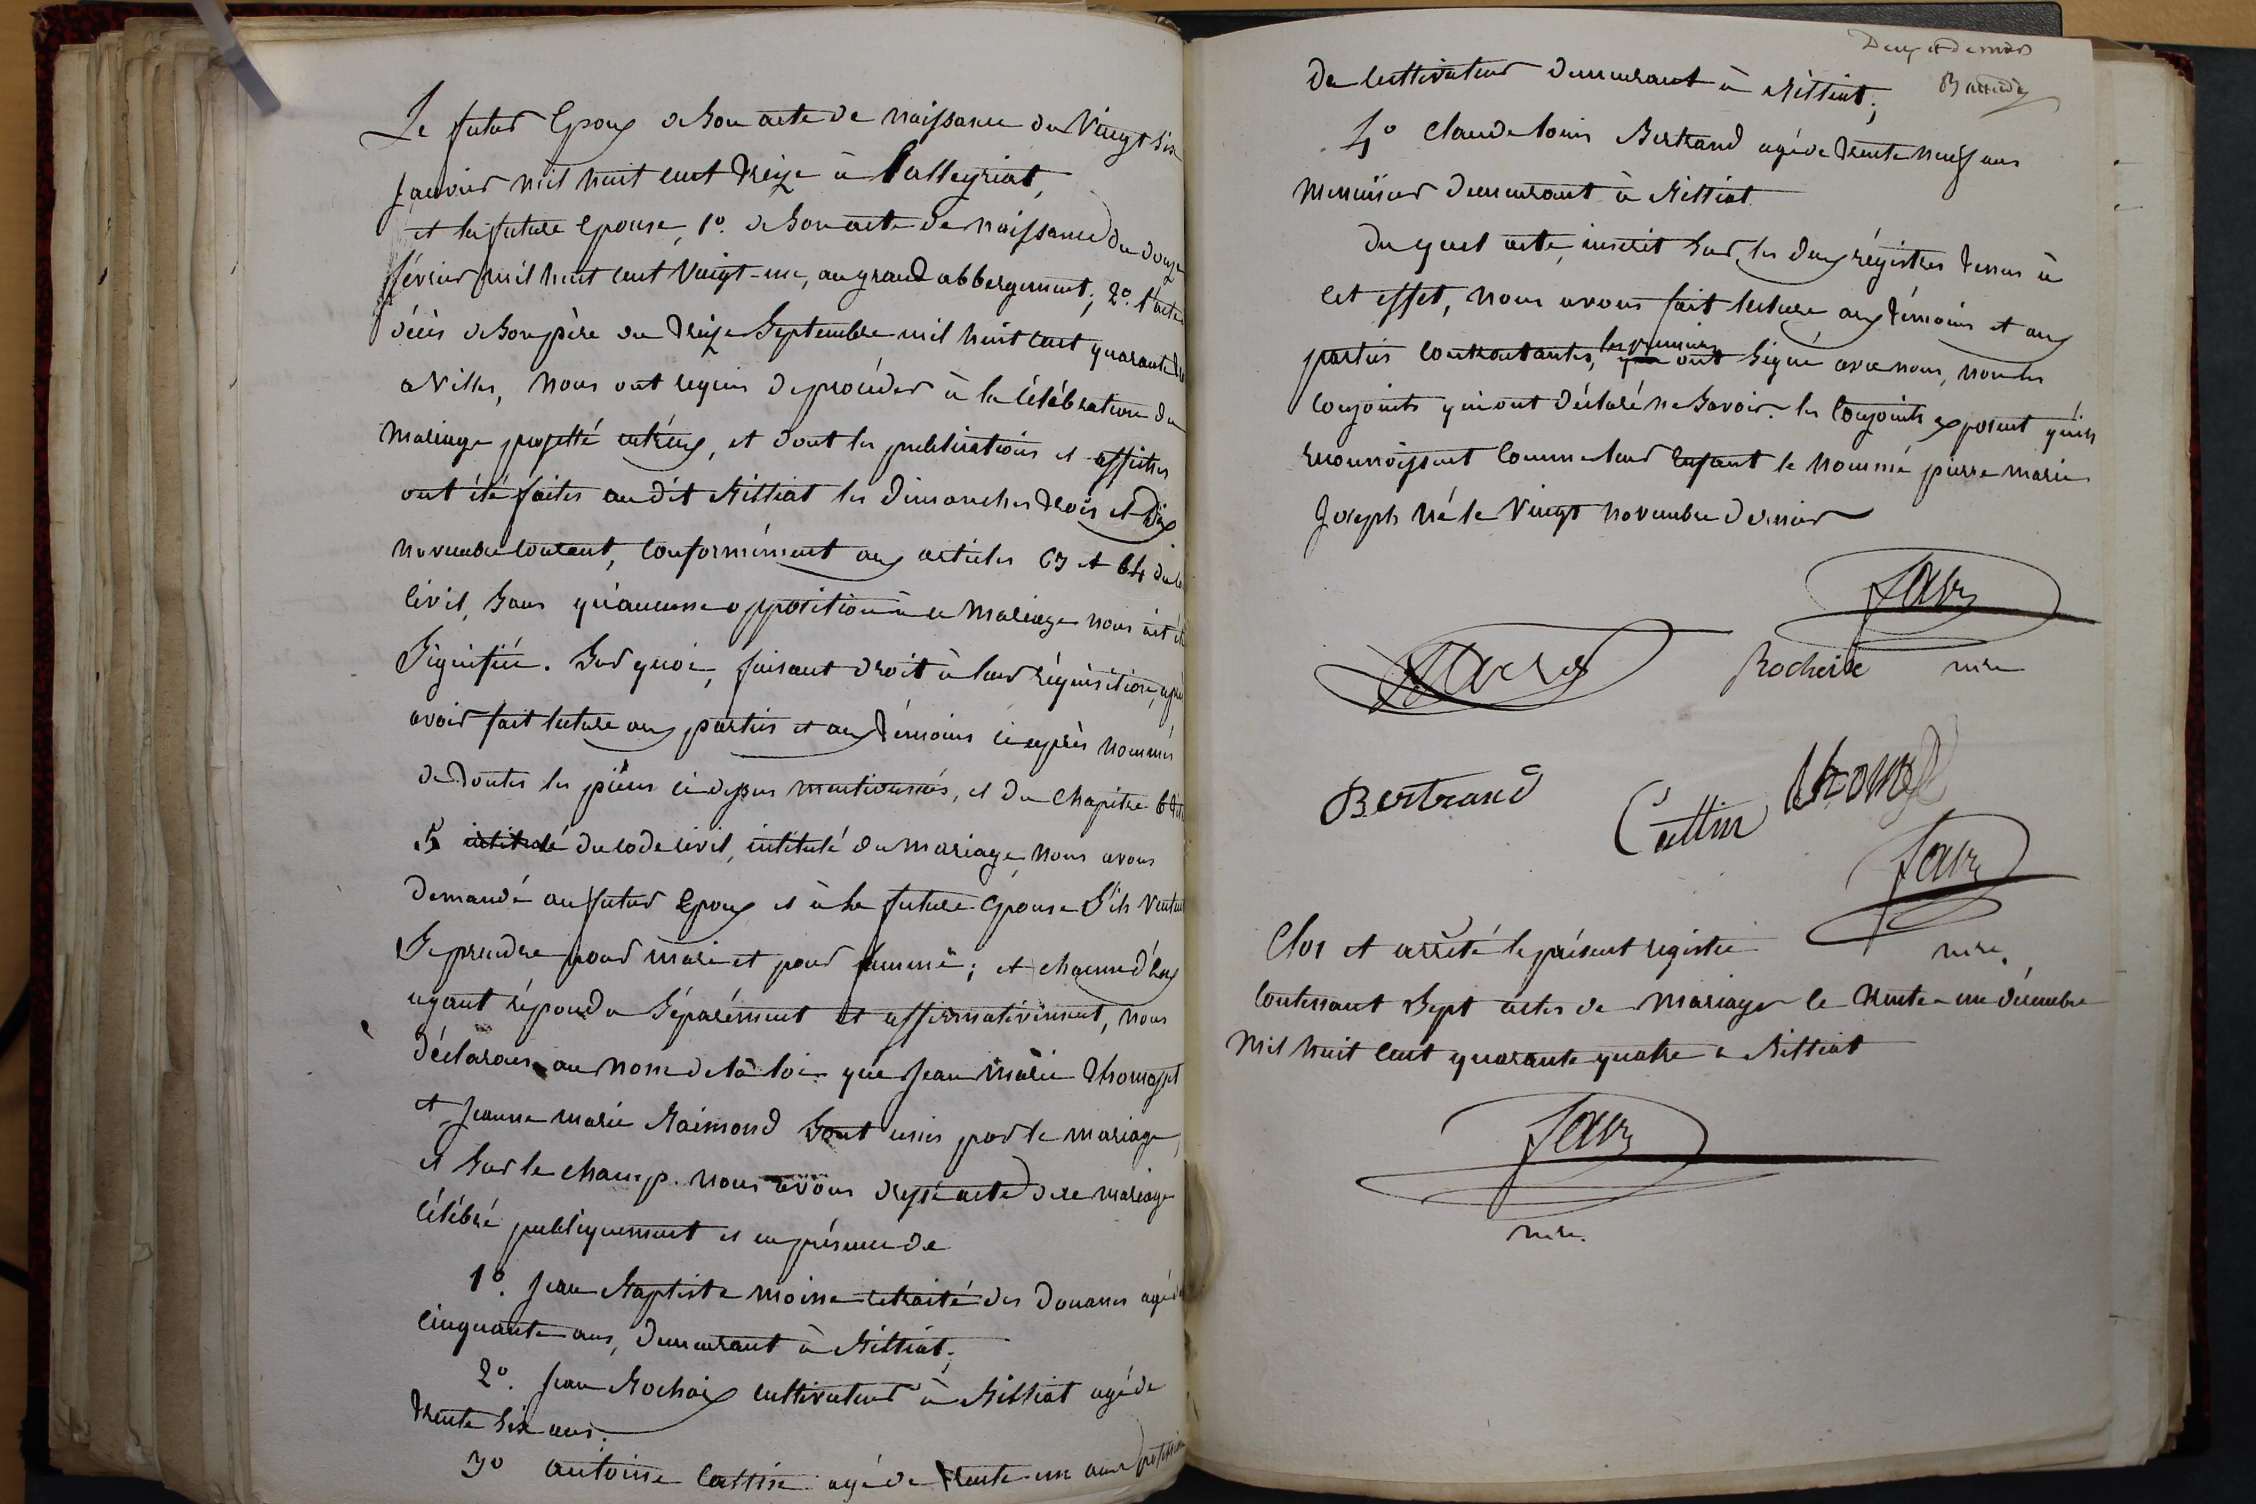 Le futur Epoux de son acte de naissance du Vingt six
janvier mil huit cent treize à Lalleyriat,
et la future Epouse, 1º. de son acte de naissance du douze
février mil huit cent vingt-un, au grand abbergement; 2º. l'acte
décès de son père du treize Septembre mil huit cent quarante
a Villes, nous ont requis de procéder à la Célébration du
mariage projetté entr'eux, et dont les publications et affiches
ont été faites au dit Billiat les Dimanches trois et dix
novembre courant, conformément aux articles 63 et 64 du
Civil, sans qu'aucune opposition à ce mariage nous ait été
Signifiée. Sur quoi, faisant droit à leur réquisition, après
avoir fait lecture aux parties et aux témoins ci après nommés
de toutes les pièces ci dessus mentionnées, et du Chapitre 6
5 intitulé du code civil, intitulé du mariage, nous avons
Demandé au futur Epoux et à la future épouse s'ils veulent
Se prendre pour mari et pour femme; et chacun d'eux
ayant répondu Séparément et affirmativement, nous
déclarons au nom de la loi que Jean marie Thomasset
et Jeanne marie Raimond Sont unis par le mariage,
et Sur le champ nous avons dressé acte de ce mariage
Célébré publiquement et en présence de
1º. Jean Baptiste moine retraité des Douanes agé de
Cinquante ans, demeurant à Billiat;
2º. Jean Rochaix cultivateur à Billiat agé de
trente six ans;
3º antoine Cattin agé de trente-un ans profession
Deux et dernier
de Cultivateur demeurant à Billiat;
4º Claude louis Bertrand agé de trente neuf ans
Menuisier demeurant à Billiat
du quel acte, inscrit Sur les deux régistres tenus à
Cet effet, nous avons fait lecture aux témoins et aux
parties Contractantes, les premiers ont Signé avec nous, non les
Conjoints qui ont déclaré ne Savoir. les Conjoints exposent qu'ils
reconnoissent Comme leur Enfant le nommé pierre marie
Joseph né le Vingt novembre dernier
Rochaix mre
Bertrand
Cattin
mre.
Clos et arrêté le présent registre
Contenant Sept actes de mariage le trente-un décembre
Mil huit cent quarante quatre à Billiat
mre.